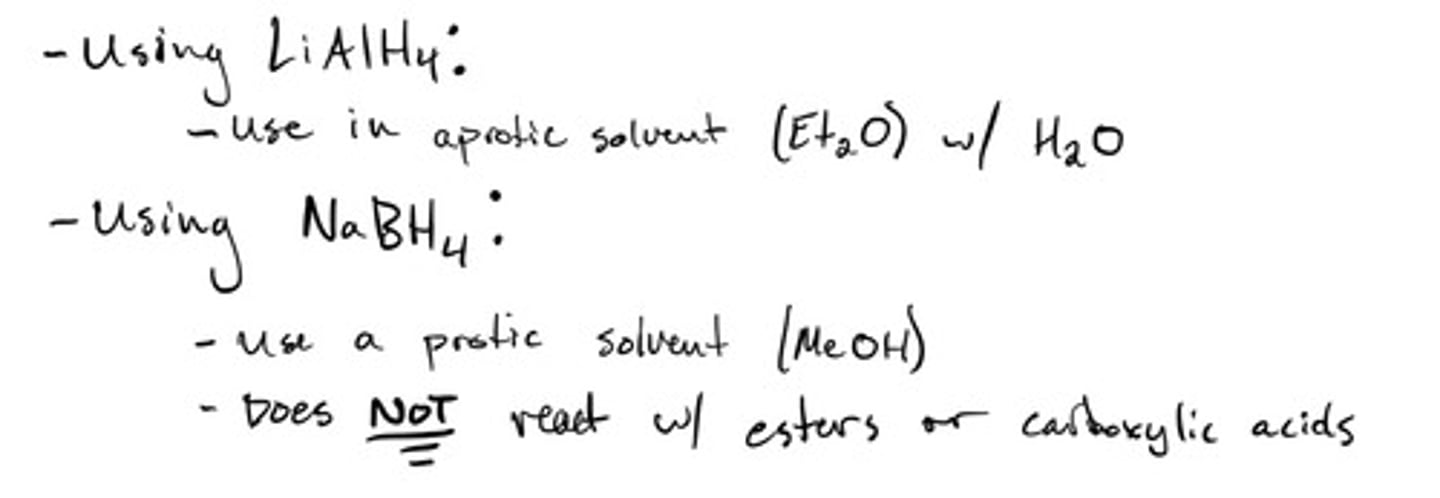 - Using LiAlH₄:
- use in aprotic solvent (Et₂O) w/ H₂O
- Using NaBH₄:
- use a protic solvent (MeOH)
- Does NOT react w/ esters or carboxylic acids